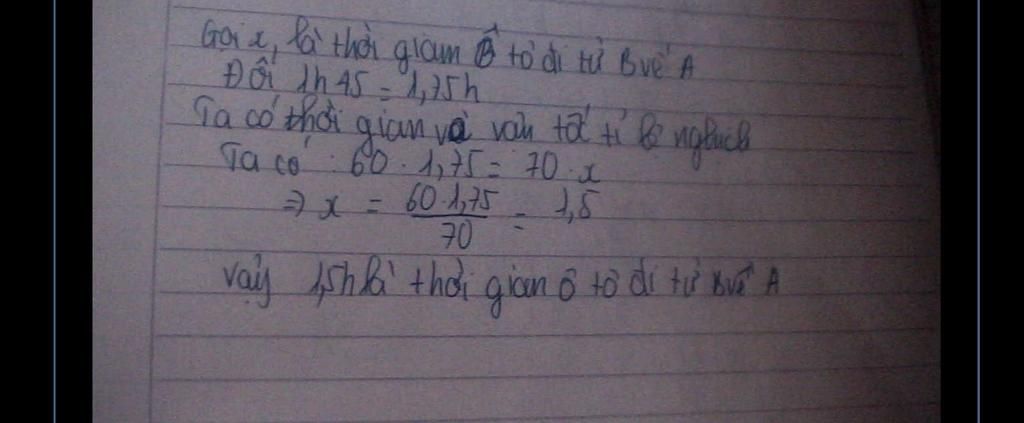 Gọi x, là thời gian ô tô đi từ B về A
Đổi 1h45 = 1,75h
Ta có thời gian và vận tốc tỉ lệ nghịch
Ta có : 60 . 1,75 = 70 . x
⇒ x = 60.1,75 / 70 = 1,5
Vậy 1,5h là thời gian ô tô đi từ B về A